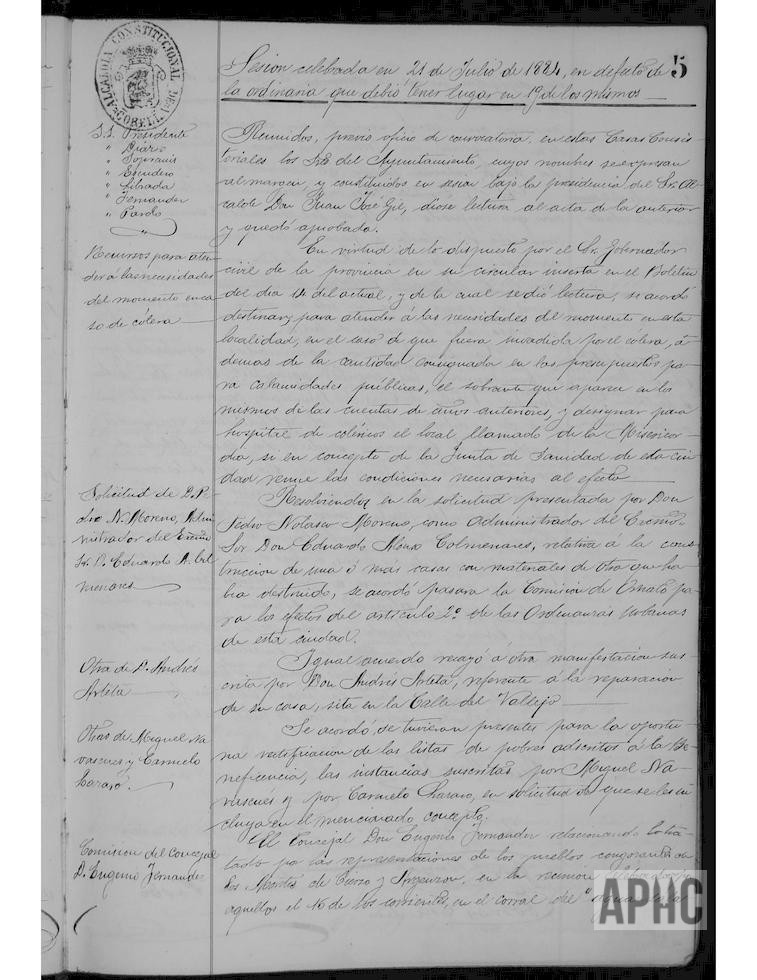 ALCALDIA CONSTITUCIONAL DE CORELLA
5
Sesion celebrada en 21 de Julio de 1884, en defecto de
la ordinaria que debió tener lugar en 19 de los mismos
S.S. Presidente
" Diaz
" Escudero
" Fernandez
" Pardo
Reunidos, previo oficio de convocatoria, en estas Casas Consis-
toriales los Sres del Ayuntamiento, cuyos nombres se expresan
al margen, y constituidos en sesion bajo la presidencia del Sr. Al-
calde Don Juan José Gil, dióse lectura al acta de la anterior
y quedó aprobada.
Recursos para aten-
der á las necesidades
del momento en ca-
so de cólera
En virtud de lo dispuesto por el Sr. Gobernador
civil de la provincia en su circular inserta en el Boletin
del dia 14 del actual, y de la cual se dió lectura, se acordó
destinar, para atender á las necesidades del momento en esta
localidad, en el caso de que fuera invadida por el cólera, á
demas de la cantidad consignada en los presupuestos pa-
ra calamidades públicas, el sobrante que aparece en los
mismos de las cuentas de años anteriores, y designar para
hospital de coléricos el local llamado de la Misericor-
dia, si en concepto de la Junta de Sanidad de esta ciu-
dad reune las condiciones necesarias al efecto
Solicitud de D. Pe-
dro N. Moreno, Admi-
nistrador del Excmo
Sr. D. Eduardo A. Col-
menares
Resolviendo en la solicitud presentada por Don
Pedro Nolasco Moreno, como administrador del Excmo.
Sor Don Eduardo Alonso Colmenares, relativa á la cons-
truccion de una ó más casas con materiales de otra que ha-
bia destruido, se acordó pasara la Comision de Ornato pa-
ra los efectos del articulo 2º de las Ordenanzas Urbanas
de esta ciudad.
Otra de D. Andrés
Arleta
Igual acuerdo recayó á otra manifestacion sus-
crita por Don Andrés Arleta, referente á la reparacion
de su casa, sita en la Calle del Vallejo
Otras de Miguel Na-
vascues y Carmelo
Lázaro.
Se acordó, se tuvieran presentes para la oportu-
na rectificacion de las listas de pobres adscritos á la Be-
neficencia, las instancias suscritas por Miguel Na-
vascués y por Carmelo Lázaro, en solicitud de que se les in-
cluya en el mencionado concepto.
Comision del Concejal
D. Eugenio Fernandez
El Concejal Don Eugenio Fernandez relacionando lo tra-
tado por las representaciones de los pueblos congozantes de
los Montes de Cierzo y Argenzon, en la reunion celebrada
aquellos el 16 de los corrientes, en el corral del
APHC